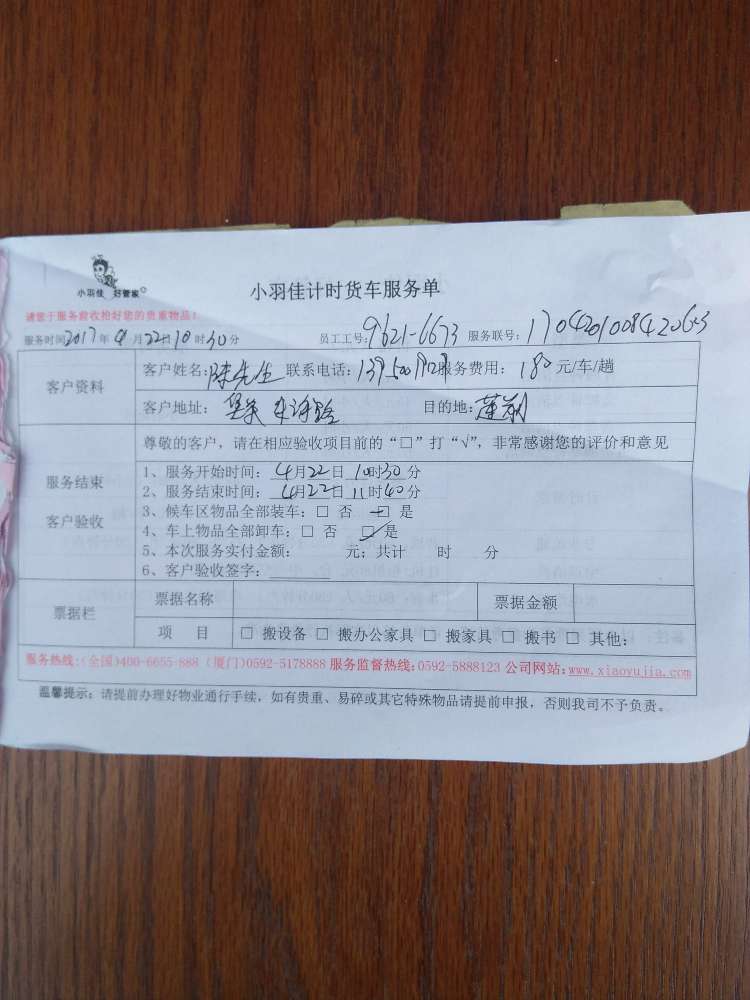 小羽佳 好管家
小羽佳计时货车服务单
请您于服务前收拾好您的贵重物品!
服务时间2017年4月22日10时30分 员工工号:9621-6673 服务联号:
客户资料 客户姓名:陈先生 联系电话: 服务费用:180元/车/趟
客户地址: 目的地:莲前
尊敬的客户，请在相应验收项目前的“□”打“√”，非常感谢您的评价和意见
服务结束 客户验收
1、服务开始时间:4月22日10时30分
2、服务结束时间:4月22日11时40分
3、候车区物品全部装车:□ 否 □ 是
4、车上物品全部卸车:□ 否 ☑ 是
5、本次服务实付金额: 元;共计 时 分
6、客户验收签字:
票据栏 票据名称 票据金额
项 目 □ 搬设备 □ 搬办公家具 □ 搬家具 □ 搬书 □ 其他:
服务热线:(全国)400-6655-888 (厦门)0592-5178888 服务监督热线:0592-5888123 公司网站:www.xiaoyujia.com
温馨提示:请提前办理好物业通行手续，如有贵重、易碎或其它特殊物品请提前申报，否则我司不予负责。